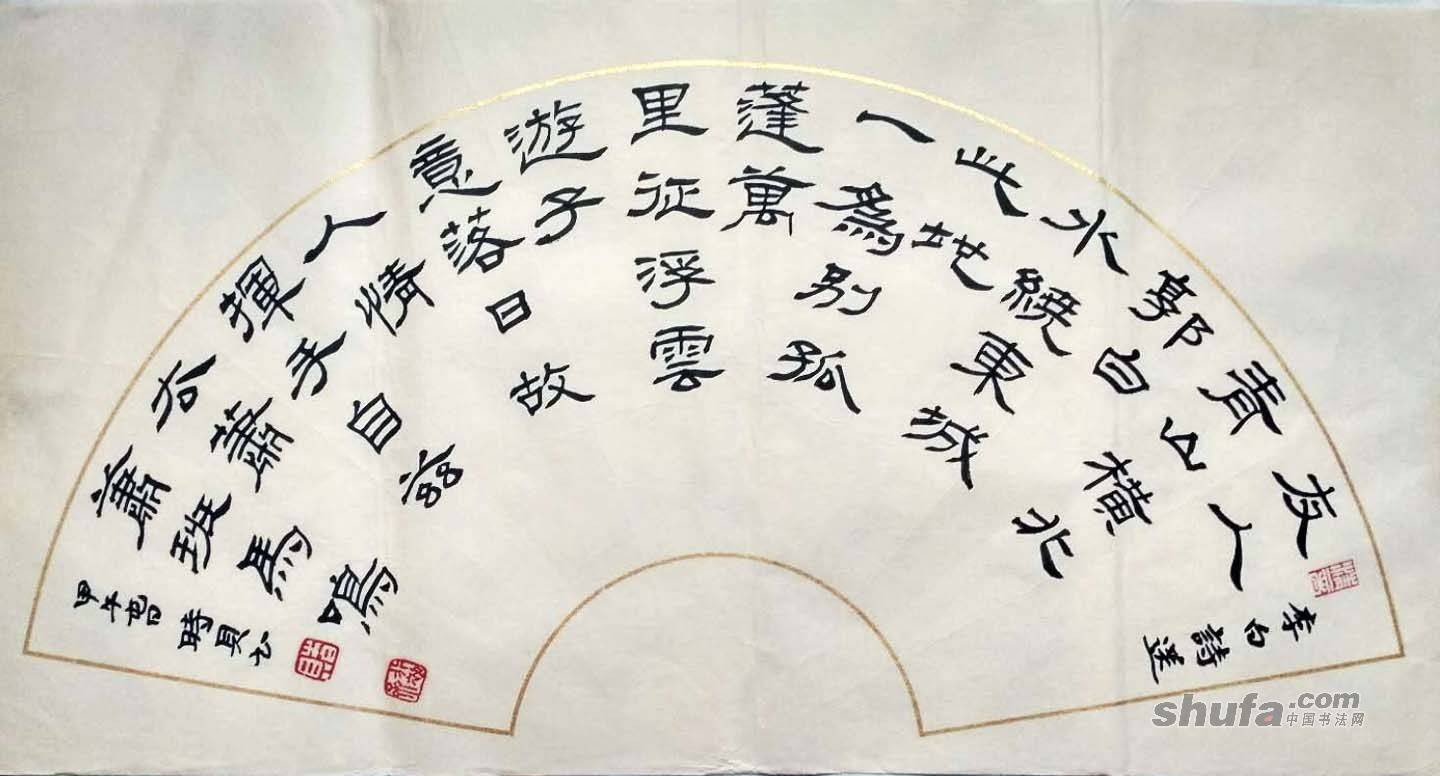 李白詩送
友人
青山橫北
郭白
水繞東城
此地
一為別孤
蓬萬
里征浮雲
遊子
意落日故
人情
揮手自茲
去蕭
蕭班馬鳴
甲午
時
shufa.com
中国书法网